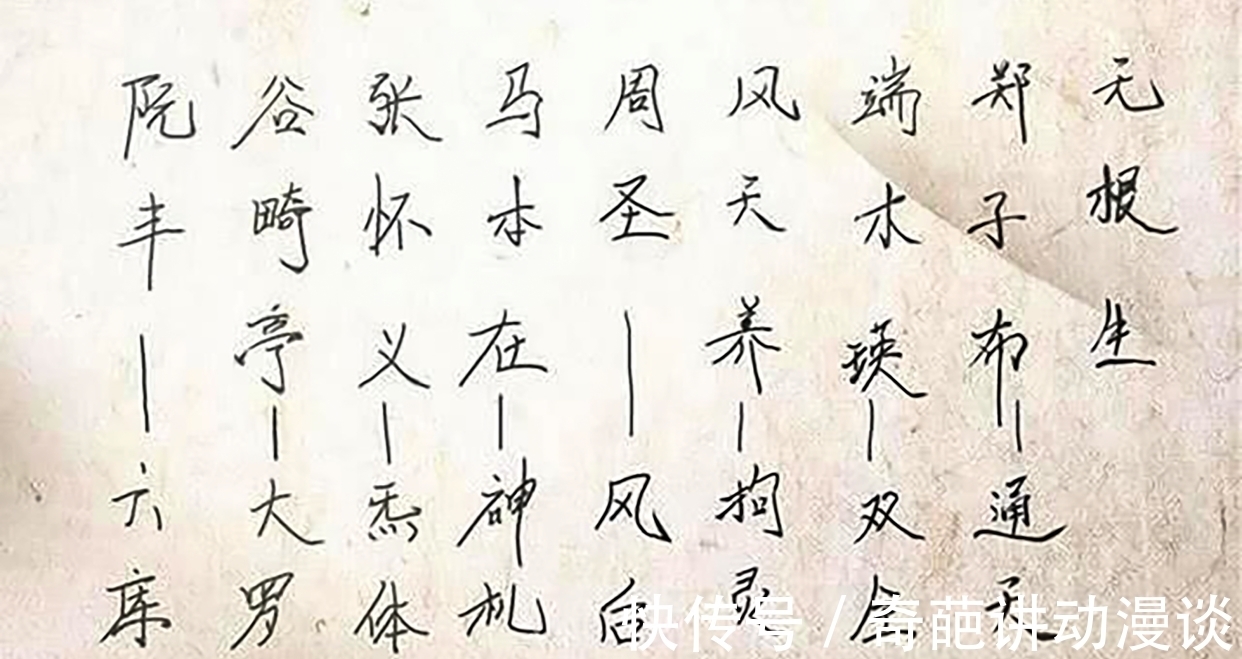 无根生
郑子布—通天
端木瑛—双全
风天养—拘灵
周圣—风后
马本在—神机
张怀义—炁体
谷畸亭—大罗
阮丰—六库
快传号 / 奇葩讲动漫谈